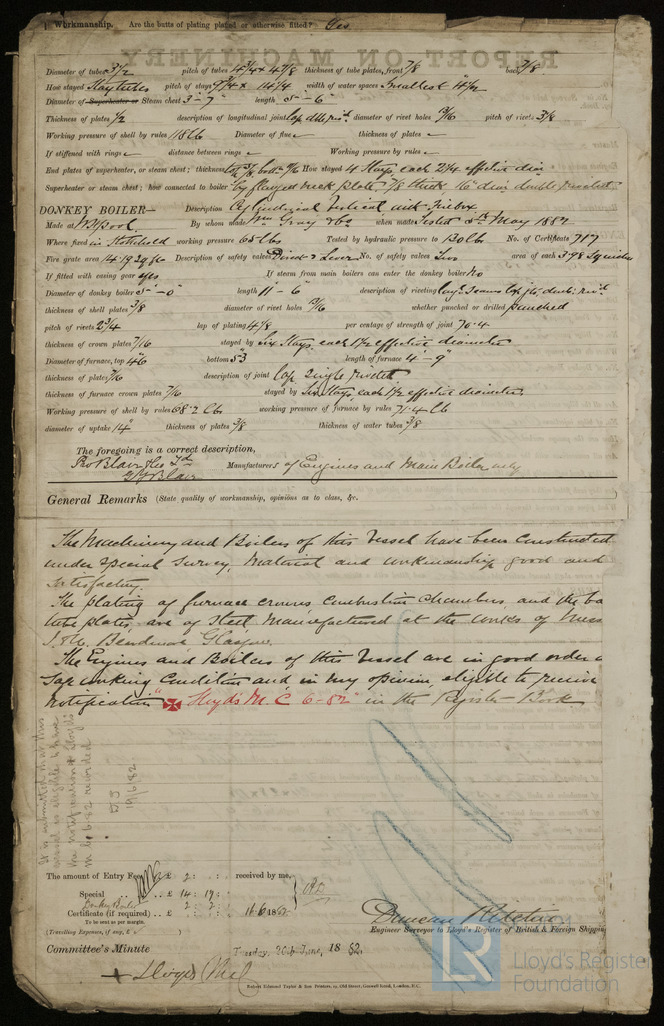 Workmanship. Are the butts of plating planed or otherwise fitted? Yes
REPORT ON MACHINERY
Diameter of tubes 3 1/2 pitch of tubes 4 3/4 x 4 7/8 thickness of tube plates, front 7/8 back 7/8
How stayed Stay tubes pitch of stays x 14 1/4 width of water spaces Smallest
Diameter of Superheater or Steam chest 3'-7" length 5'-6"
Thickness of plates 1/2 description of longitudinal joint lap dble rivt. diameter of rivet holes 13/16 pitch of rivets
Working pressure of shell by rules 118 lb Diameter of flue thickness of plates
If stiffened with rings distance between rings Working pressure by rules
End plates of superheater, or steam chest; thickness How stayed 4 Stays each 2 1/4 effective diam
Superheater or steam chest; how connected to boiler by flanged neck plate 5/8 thick 16" diam double riveted
DONKEY BOILER— Description Cylindrical Vertical with Firebox
Made at W.Hpool By whom made Wm Gray & Co when made Tested 5th May 1882
Where fixed in Stokehold working pressure 65 lbs Tested by hydraulic pressure to 130 lbs No. of Certificate 717
Fire grate area 14.19 sq ft Description of safety valves Direct & Lever No. of safety valves Two area of each 3.98 Sq inches
If fitted with easing gear yes If steam from main boilers can enter the donkey boiler No
Diameter of donkey boiler 5'-0" length 11'-6" description of riveting Long. Seams lap jts, double rivt.
thickness of shell plates 3/8 diameter of rivet holes 13/16 whether punched or drilled punched
pitch of rivets 2 3/4 lap of plating 4 1/8 per centage of strength of joint 70.4
thickness of crown plates 7/16 stayed by Six Stays each 1 1/2 effective diameter
Diameter of furnace, top 46 bottom 53 length of furnace 4'-9"
thickness of plates 7/16 description of joint lap single riveted
thickness of furnace crown plates 7/16 stayed by Six Stays, each 1 1/2 effective diameter.
Working pressure of shell by rules 68.2 lbs working pressure of furnace by rules 71.4 lb
diameter of uptake 14" thickness of plates 3/8 thickness of water tubes 3/8
The foregoing is a correct description,
Pro Blair & Co Ld Manufacturers of Engines and Main Boiler only
Blair
General Remarks (State quality of workmanship, opinions as to class, &c.
The Machinery and Boilers of this Vessel have been Constructed
under special Survey, Material and workmanship good and
Satisfactory.
The plating of furnace crowns Combustion Chambers, and the ba
tube plates, are of Steel Manufactured at the works of Mess
Beardmore Glasgow.
The Engines and Boilers of this Vessel are in good order a
Safe working Condition and in my opinion eligible to receive
notification " Lloyd's M.C. 6-82" in the Register Book
It is submitted that this
vessel is eligible to have
the notification Lloyds
M.C. 6.82 recorded
19/6/82
The amount of Entry Fee £ 2 : : received by me,
Special £ 14 : 19 :
Donkey Boiler 2 : 2 :
Certificate (if required) .. £ : : 16.6 1882
To be sent as per margin.
(Travelling Expenses, if any, £ )
Duncan Ritchie
Engineer Surveyor to Lloyd's Register of British & Foreign Shipping
Committee's Minute Tuesday, 20th June, 1882.
+ Lloyds
Robert Edmund Taylor & Son Printers, 19, Old Street, Goswell Road, London, E.C.
LR Lloyd's Register
Foundation